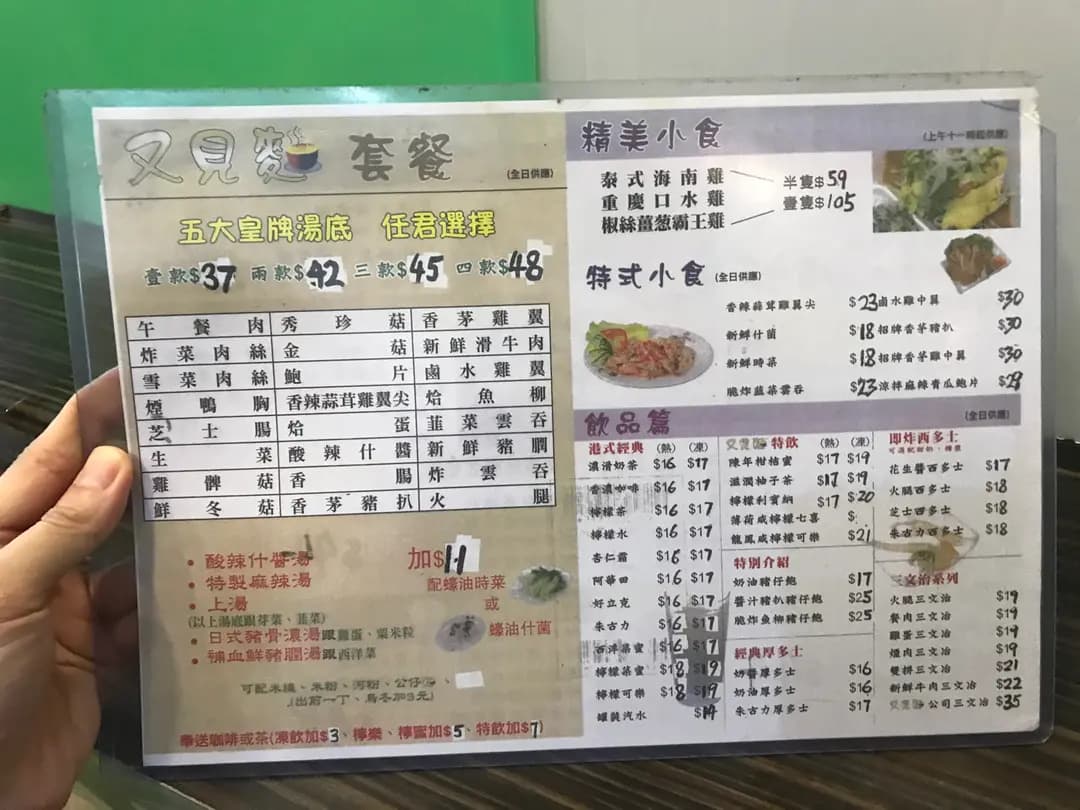 又見麵 套餐 (全日供應)
五大皇牌湯底 任君選擇
壹款$37 兩款$42 三款$45 四款$48
午餐肉 秀珍菇 香茅雞翼
炸菜肉絲 金菇 新鮮滑牛肉
雪菜肉絲 鮑片 鹵水雞翼
煙鴨胸 香辣蒜茸雞翼尖 烚魚柳
芝士腸 烚蛋 韮菜雲吞
生菜 酸辣什醬 新鮮豬膶
雞髀菇 香腸 炸雲吞
鮮冬菇 香茅豬扒 火腿
• 酸辣什醬湯
• 特製麻辣湯
• 上湯
(以上湯底跟芽菜、韮菜)
• 日式豬骨濃湯跟雞蛋、粟米粒
• 補血鮮豬膶湯跟西洋菜
加$11
配蠔油時菜
或
蠔油什菌
可配米線、米粉、河粉、公仔
(出前一丁、烏冬加3元)
奉送咖啡或茶(凍飲加$3、檸樂、檸蜜加$5、特飲加$7)
精美小食 (上午十一時起供應)
泰式海南雞
重慶口水雞
椒絲薑葱霸王雞
半隻$59
壹隻$105
特式小食 (全日供應)
香辣蒜茸雞翼尖 $23
新鮮什菌 $18
新鮮時菜 $18
脆炸韮菜雲吞 $23
鹵水雞中翼 $30
招牌香茅豬扒 $30
招牌香茅雞中翼 $30
涼拌麻辣青瓜鮑片 $29
飲品篇 (全日供應)
港式經典 (熱) (凍)
濃滑奶茶 $16 $17
香濃咖啡 $16 $17
檸檬茶 $16 $17
檸檬水 $16 $17
杏仁霜 $16 $17
阿華田 $16 $17
好立克 $16 $17
朱古力 $16 $17
西洋菜蜜 $16 $17
檸檬菜蜜 $18 $19
檸檬可樂 $18 $19
罐裝汽水 $14
又見麵 特飲 (熱) (凍)
陳年柑桔蜜 $17 $19
滋潤柚子茶 $17 $19
檸檬利賓納 $17 $20
薄荷咸檸檬七喜 $
龍鳳咸檸檬可樂 $21
特別介紹
奶油豬仔飽 $17
醬汁豬扒豬仔飽 $25
脆炸魚柳豬仔飽 $25
經典厚多士
奶醬厚多士 $16
奶油厚多士 $16
朱古力厚多士 $17
即炸西多士
花生醬西多士 $17
火腿西多士 $18
芝士西多士 $18
朱古力西多士 $18
三文治系列
火腿三文治 $19
餐肉三文治 $19
雞蛋三文治 $19
煙肉三文治 $19
雙拼三文治 $21
新鮮牛肉三文治 $22
又見麵 公司三文治 $35